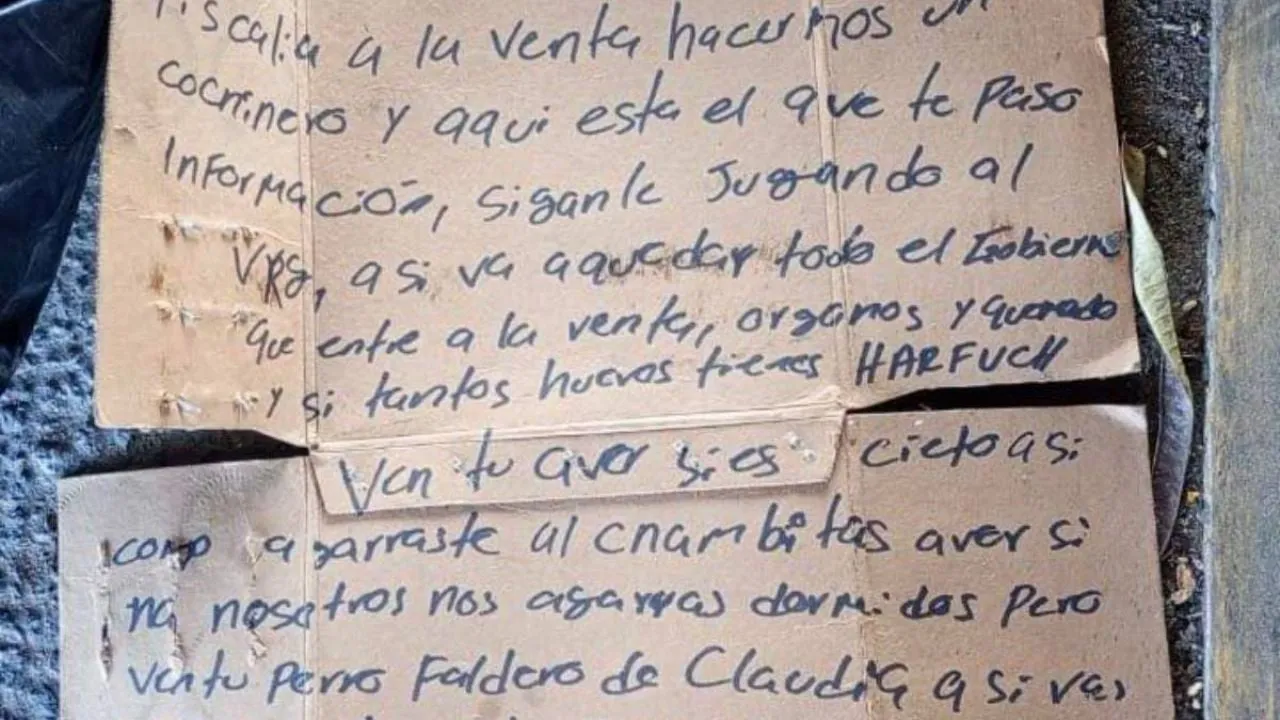 Fiscalia a la venta hacermos un
cocninero y aqui esta el que te paso
Información, siganle Jugando al
VRg, a si va a quedar todo el Gobierno
que entre a la venta, organos y quemado
y si tantos huevos tienes HARFUCH
Ven tu aver si es cieto asi
como agarraste al cnambitas aver si
na nosotros nos agarras dormidos pero
ven tu perro Faldero de Claudia a si vas